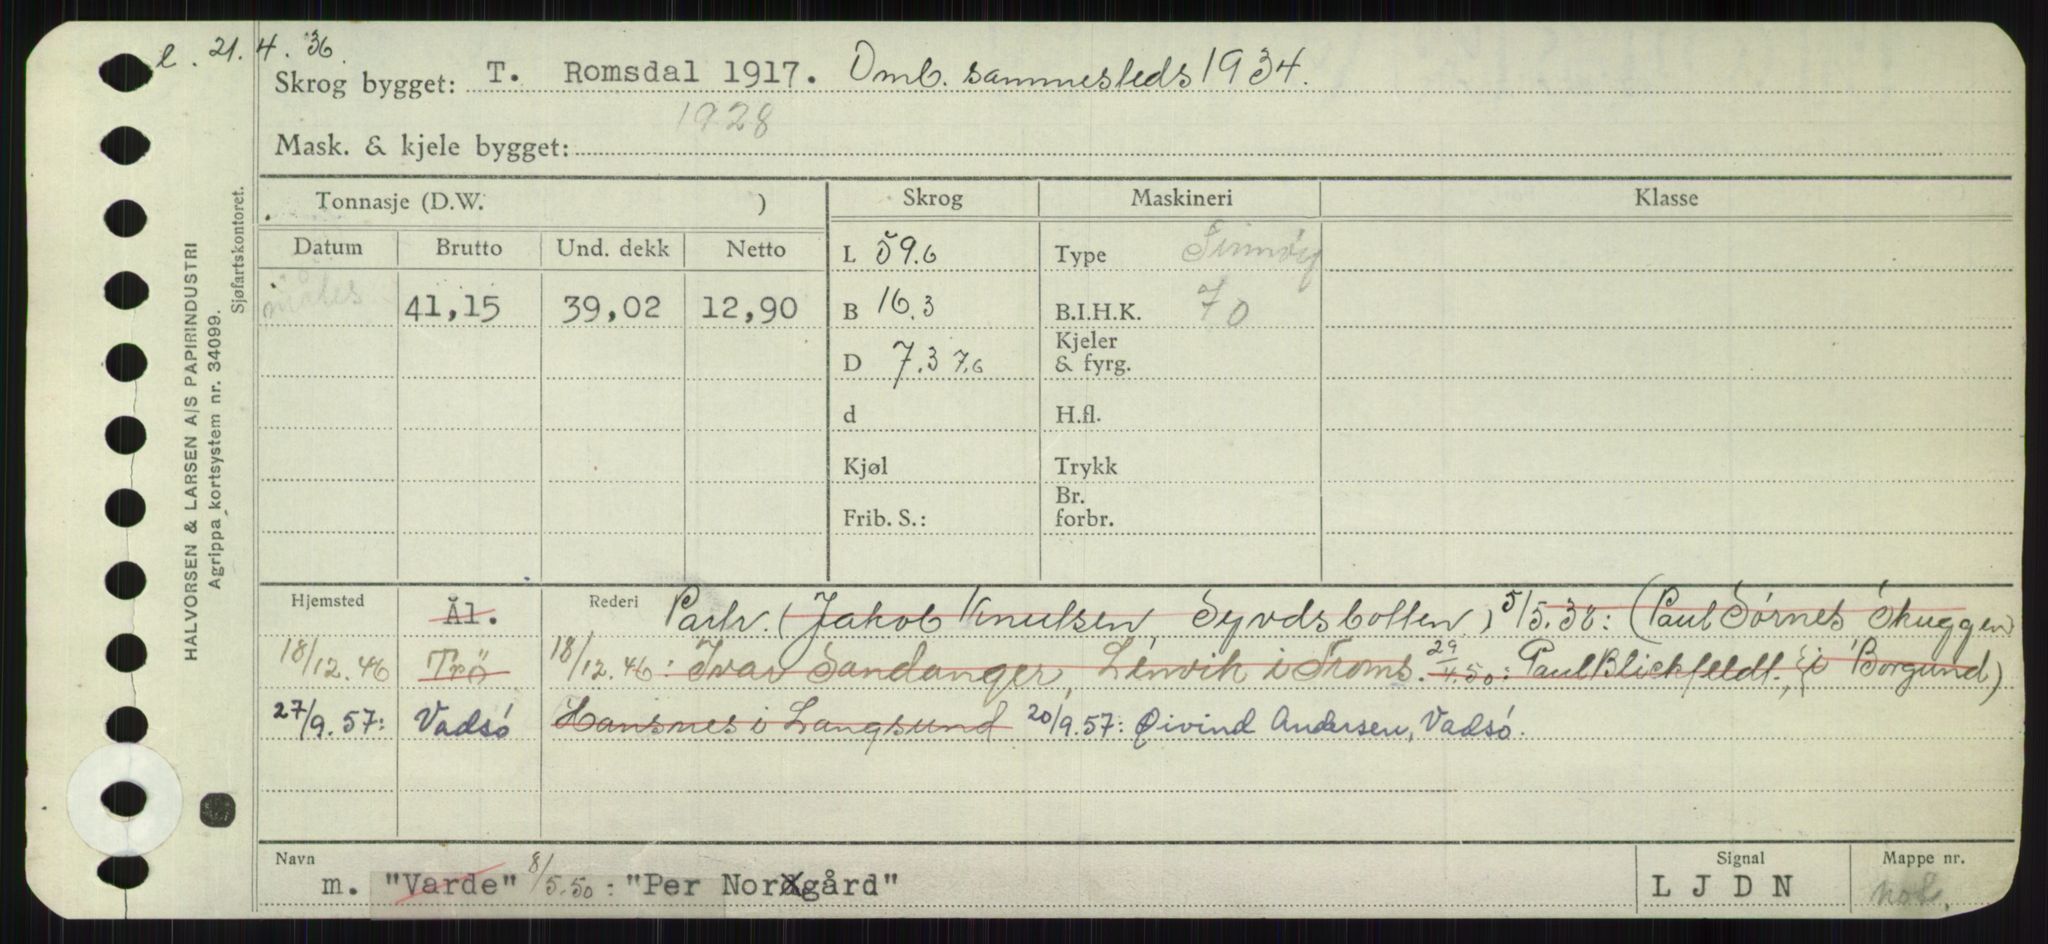 l. 21.4.36.
Skrog bygget: T. Romsdal 1917. Omb. sammesteds 1934.
1928
Mask. & kjele bygget:
HALVORSEN & LARSEN A/S PAPIRINDUSTRI
Agrippa kortsystem nr. 34099.
Sjøfartskontoret.
Tonnasje (D.W. ) Skrog Maskineri Klasse
Datum Brutto Und. dekk Netto
L 59.6 Type
måles 41,15 39,02 12,90 B 16.3 B.I.H.K. 70
D 7.3 7.6 Kjeler & fyrg.
d H.fl.
Kjøl Trykk
Frib. S.: Br. forbr.
Hjemsted Ål. Rederi Partr. (Jakob Knutsen, Syvdsbotten) 5/5.38: (Paul Sørnes Skuggen
18/12.46 Trö 18/12.46: Ivar Sandanger, Lenvik i Troms. 29/4.50: Paul Blickfeldt, { i Borgund)
27/9.57: Vadsö Hansnes i Langsund 20/9.57: Øivind Andersen, Vadsö.
Navn Signal Mappe nr.
m. "Varde" 8/5.50: "Per Norgård" L J D N